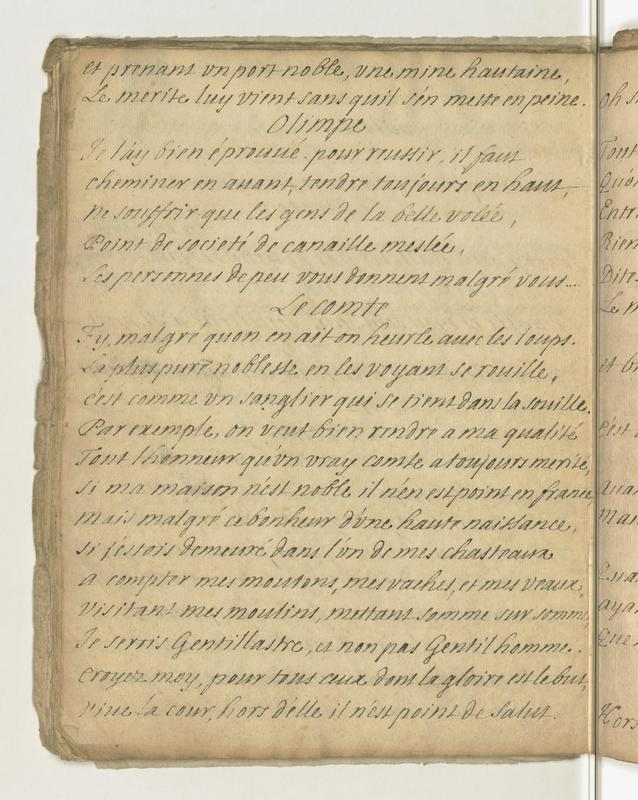 et prenant vn port noble, vne mine hautaine,
Le merite luy vient sans quil s'en mette en peine.
Olimpe
Je l'ay bien éprouué. pour reussir, il faut
cheminer en auant, tendre toujours en haut,
ne souffrir que les gens de la belle volée,
Point de societé de canaille meslée,
Les personnes de peu vous donnent malgré vous...
Le comte
Fy, malgré quon en ait on heurle auec les loups.
La plus pure noblesse en les voyant se rouille,
c'est comme vn sanglier qui se tient dans la souille.
Par exemple, on veut bien rendre a ma qualité
Tout l'honneur qu'vn vray comte a toujours merité,
si ma maison n'est noble il n'en est point en france
mais malgré ce bonheur d'vne haute naissance,
si j'estois demeuré dans l'vn de mes chasteaux
a compter mes moutons, mes vaches, et mes veaux,
visitant mes moulins, mettant somme sur somme,
Je serois Gentillastre, et non pas Gentil homme.
croyez moy, pour tous ceux dont la gloire est le but,
viue la cour, hors d'elle il n'est point de salut.